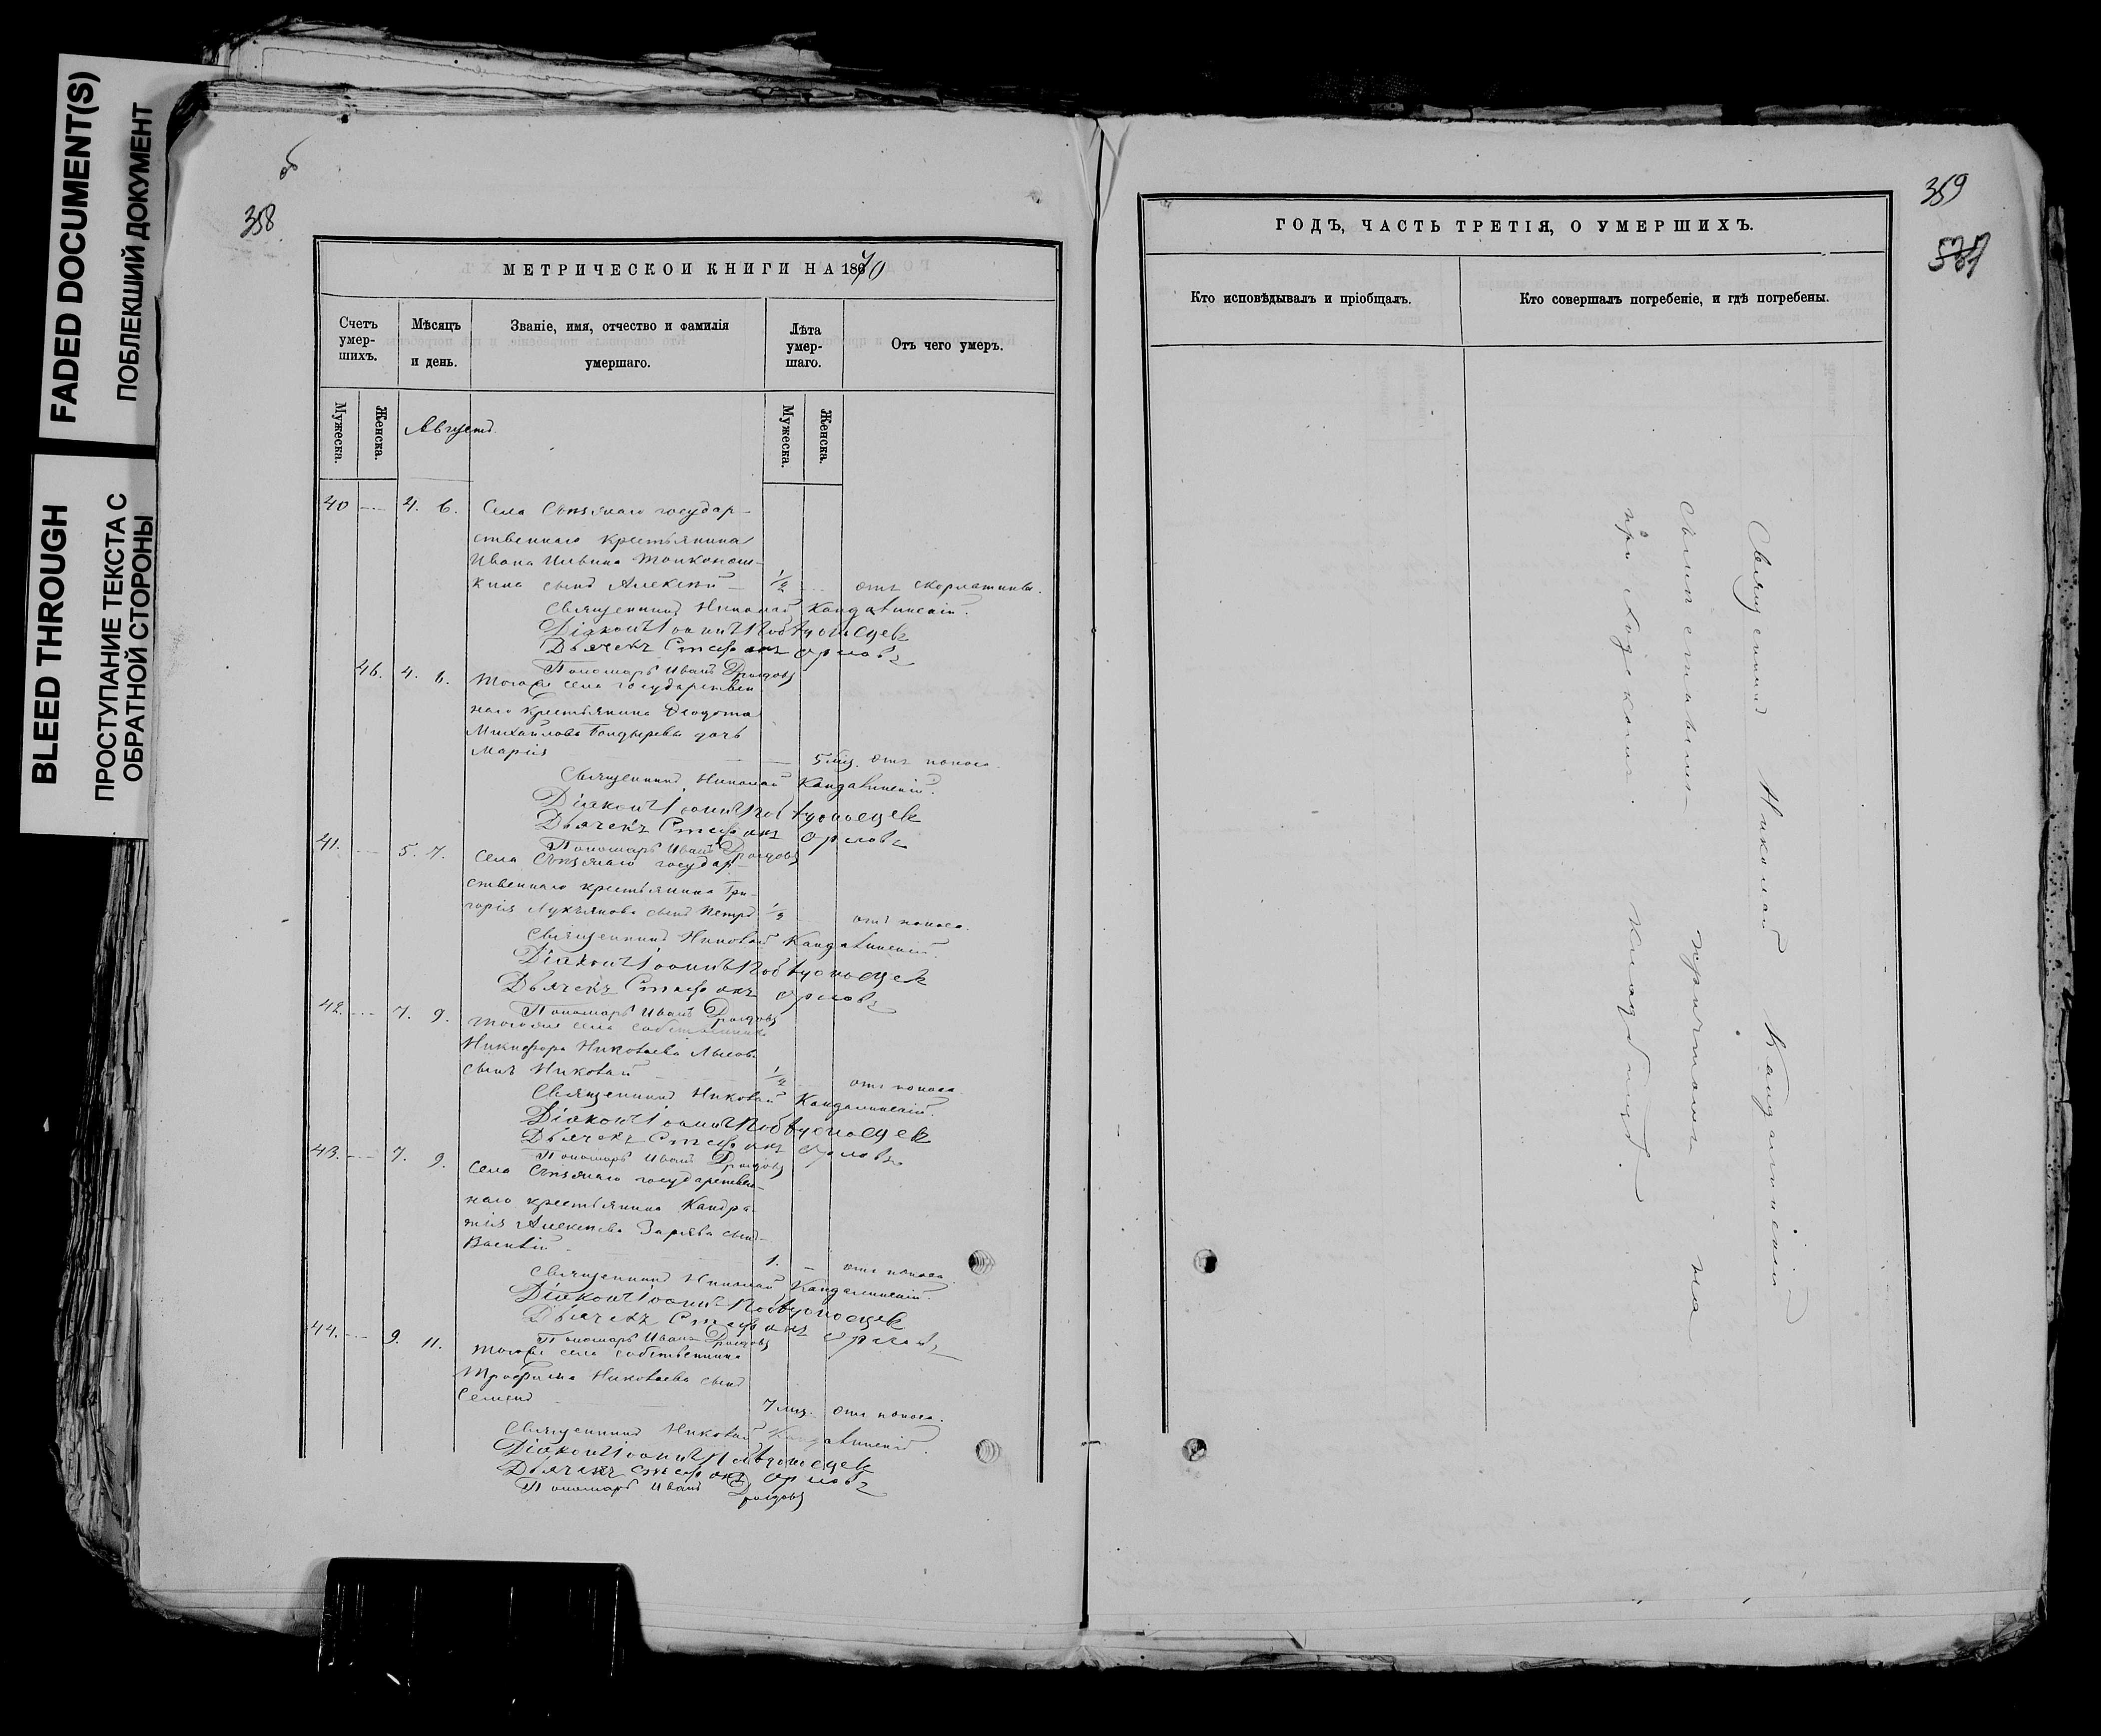 FADED DOCUMENT(S)
ПОБЛЕКШИЙ ДОКУМЕНТ
BLEED THROUGH
ПРОСТУПАНИЕ ТЕКСТА С
ОБРАТНОЙ СТОРОНЫ
об
358
МЕТРИЧЕСКОЙ КНИГИ НА 1870
Счетъ умер-шихъ.
Мѣсяцъ и день.
Званіе, имя, отчество и фамилія умершаго.
Лѣта умер-шаго.
Отъ чего умеръ.
Мужеска.
Женска.
Августъ
Мужеска.
Женска.
40 4. 6. Села государ-
ственнаго крестьянина
Ивана Ильина
кина сынъ Алексѣй 1/2 отъ скарлатины.
Священникъ Николай
Діаконъ Іоаннъ
Дьячекъ Стефанъ Орловъ
Пономарь Иванъ Дроздовъ
46. 4. 6. Тогоже села государствен
наго крестьянина Ѳедота
Михайлова дочь
Марія 5 мц. отъ поноса.
Священникъ Николай
Діаконъ Іоаннъ
Дьячекъ Стефанъ Орловъ
Пономарь Иванъ Дроздовъ
41. 5. 7. Села государ-
ственнаго крестьянина Гри-
горія Лукьянова сынъ Петръ 1/2 отъ поноса.
Священникъ Николай
Діаконъ Іоаннъ
Дьячекъ Стефанъ Орловъ
Пономарь Иванъ Дроздовъ
42. 7. 9. Тогоже села собственника
Никифора Николаева
сынъ Николай 1/2 отъ поноса
Священникъ Николай
Діаконъ Іоаннъ
Дьячекъ Стефанъ Орловъ
Пономарь Иванъ Дроздовъ
43. 7. 9. Села государствен-
наго крестьянина Кандра-
тія Алексѣева сынъ
Василій 1. отъ поноса.
Священникъ Николай
Діаконъ Іоаннъ
Дьячекъ Стефанъ Орловъ
Пономарь Иванъ Дроздовъ
44. 9. 11. Тогоже села собственника
Трофима Николаева сынъ
Семенъ 7 мц. отъ поноса.
Священникъ Николай
Діаконъ Іоаннъ
Дьячекъ Стефанъ Орловъ
Пономарь Иванъ Дроздовъ
359
ГОДЪ, ЧАСТЬ ТРЕТІЯ, О УМЕРШИХЪ.
Кто исповѣдывалъ и пріобщалъ.
Кто совершалъ погребеніе, и гдѣ погребены.
Священникъ Николай
причтомъ на
приходскомъ кладбищѣ.